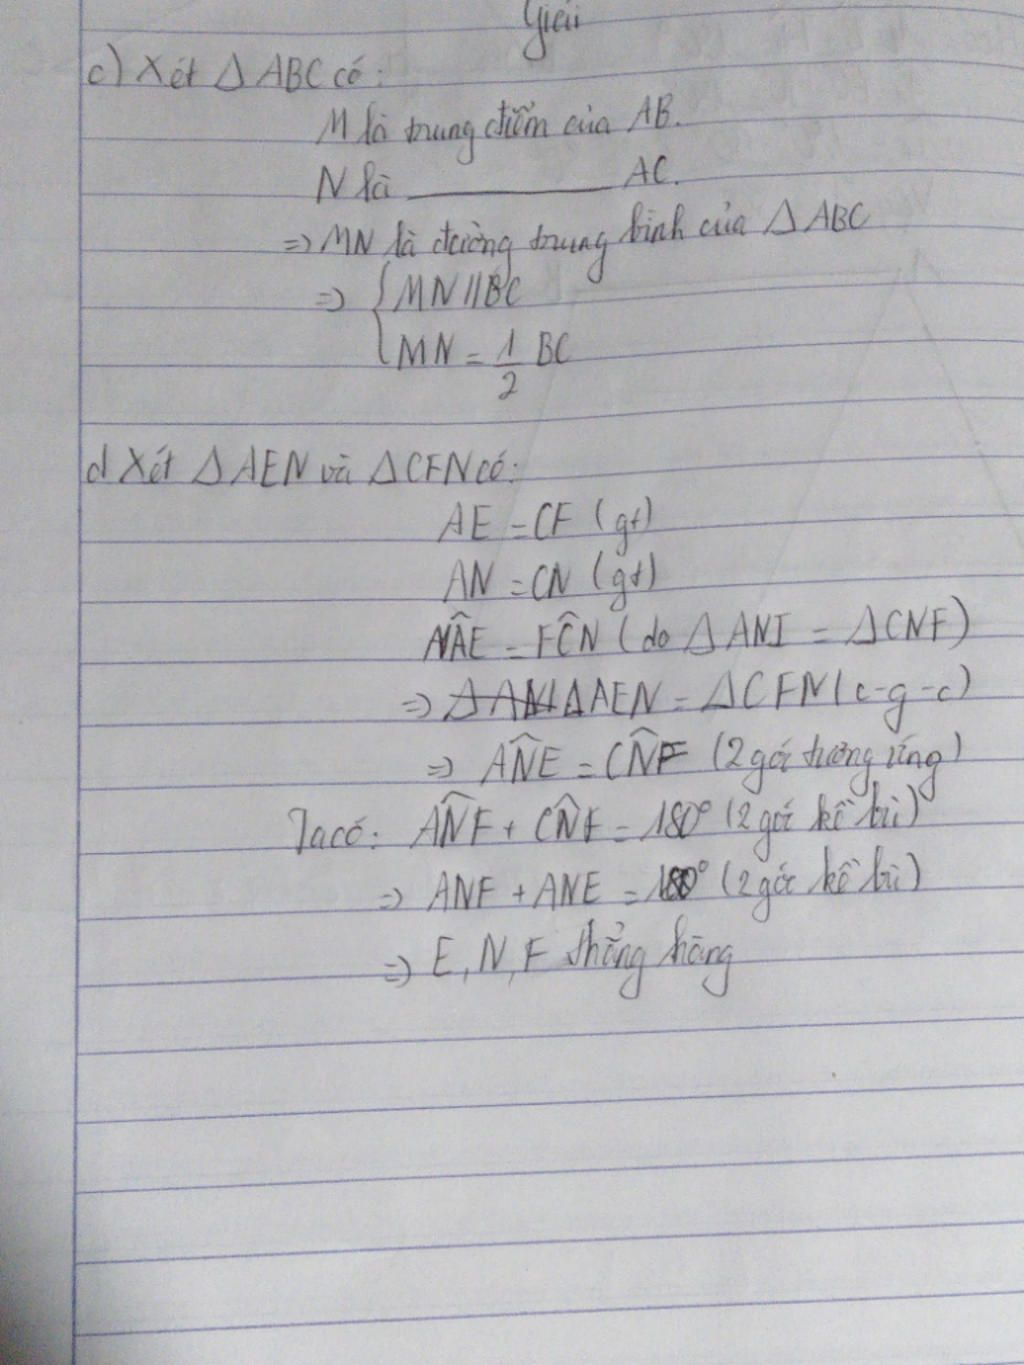 Giải
c) Xét Δ ABC có:
M là trung điểm của AB.
N là ________ AC.
=> MN là đường trung bình của Δ ABC
=> { MN // BC
MN = 1/2 BC
d Xét Δ AEN và Δ CFN có:
AE = CF (gt)
AN = CN (gt)
NÂE = FĈN (do Δ ANI = Δ CNF)
=> Δ AEN = Δ CFN (c-g-c)
=> AN̂E = CN̂F (2 góc tương ứng)
Ta có: AN̂F + CN̂F = 180° (2 góc kề bù)
=> ANF + ANE = 180° (2 góc kề bù)
=> E, N, F thẳng hàng